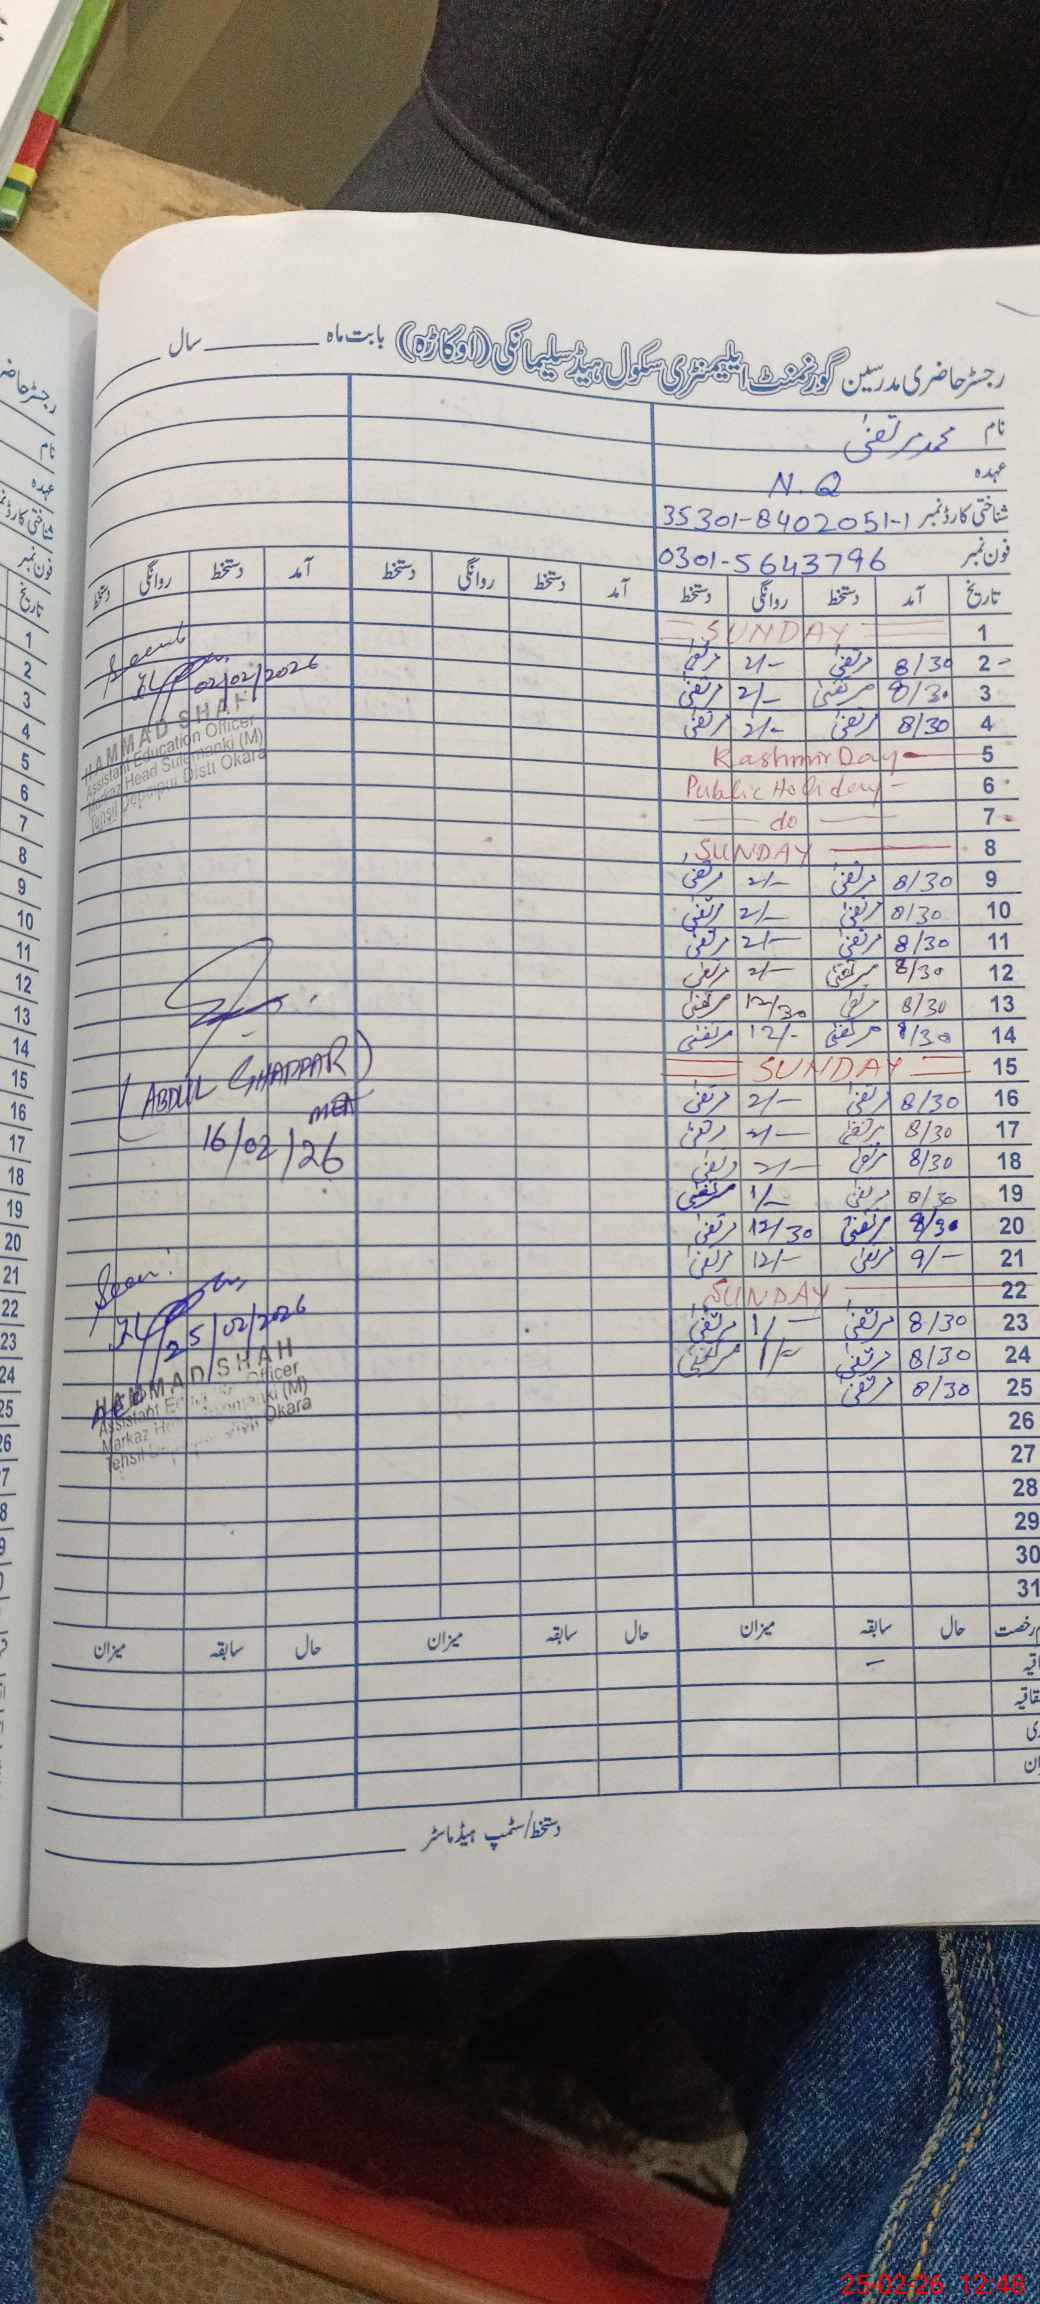 رجسٹر حاضری مدرسین گورنمنٹ ایلیمنٹری سکول ہیڈ سلیمانکی (اوکاڑہ) بابت ماہ ـــــ سال ـــــ
نام محمد مرتضیٰ
عہدہ N.Q
شناختی کارڈ نمبر 35301-8402051-1
فون نمبر 0301-5643796
تاریخ آمد دستخط روانگی دستخط آمد دستخط روانگی دستخط آمد دستخط روانگی دستخط
1 SUNDAY
2 8/30 مرتضیٰ 2/- مرتضیٰ
3 8/30 مرتضیٰ 2/- مرتضیٰ
4 8/30 مرتضیٰ 2/- مرتضیٰ
5 Kashmir Day
6 Public Holiday
7 do
8 SUNDAY
9 8/30 مرتضیٰ 2/- مرتضیٰ
10 8/30 مرتضیٰ 2/- مرتضیٰ
11 8/30 مرتضیٰ 2/- مرتضیٰ
12 8/30 مرتضیٰ 2/- مرتضیٰ
13 8/30 مرتضیٰ 12/30 مرتضیٰ
14 8/30 مرتضیٰ 12/- مرتضیٰ
15 SUNDAY
16 8/30 مرتضیٰ 2/- مرتضیٰ
17 8/30 مرتضیٰ 2/- مرتضیٰ
18 8/30 مرتضیٰ 2/- مرتضیٰ
19 8/30 مرتضیٰ 1/- مرتضیٰ
20 8/30 مرتضیٰ 12/30 مرتضیٰ
21 9/- مرتضیٰ 12/- مرتضیٰ
22 SUNDAY
23 8/30 مرتضیٰ 1/- مرتضیٰ
24 8/30 مرتضیٰ 1/- مرتضیٰ
25 8/30 مرتضیٰ
26
27
28
29
30
31
رخصت حال سابقہ میزان حال سابقہ میزان حال سابقہ میزان
دستخط/سٹمپ ہیڈماسٹر
Seen
02/02/2026
HAMMAD SHAH
Assistant Education Officer
Markaz Head Sulemanki (M)
Tehsil Depalpur Distt Okara
(ABDUL GHAFFAR)
MEA
16/02/26
Seen
25/02/2026
HAMMAD SHAH
Assistant Education Officer
Markaz Head Sulemanki (M)
Tehsil Depalpur Distt Okara
رجسٹر حاضری
نام
عہدہ
شناختی کارڈ نمبر
فون نمبر
تاریخ
1
2
3
4
5
6
7
8
9
10
11
12
13
14
15
16
17
18
19
20
21
22
23
24
25
26
25-02-26 12:48